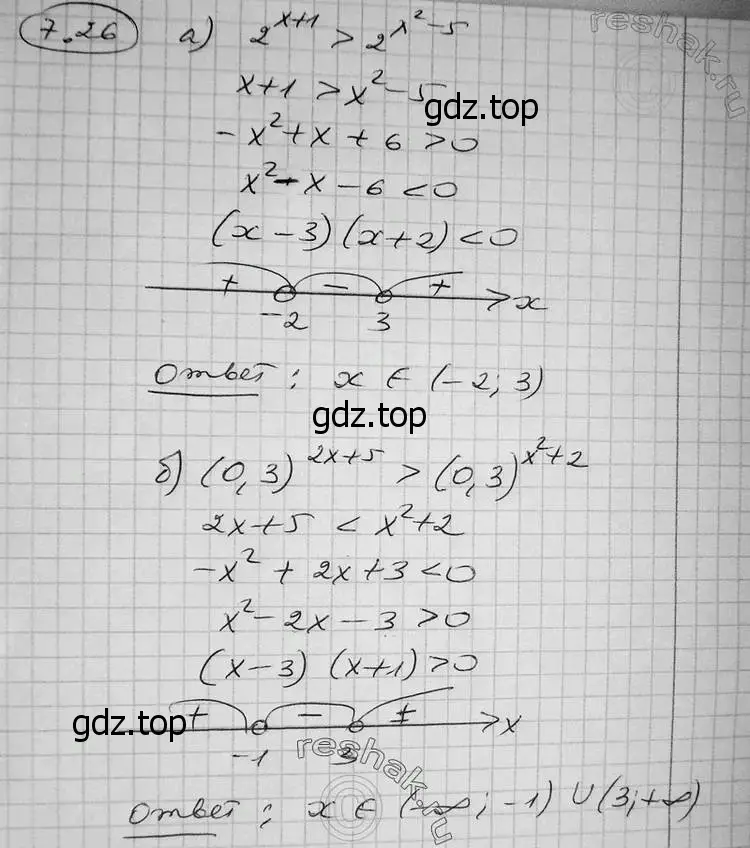 7.26 а) 2^(x+1) > 2^(x²-5)
reshak.ru
x+1 > x²-5
gdz.top
-x²+x+6>0
x²-x-6<0
(x-3)(x+2)<0
+ - + x
-2 3
Ответ: x ∈ (-2; 3)
gdz.top
б) (0,3)^(2x+5) > (0,3)^(x²+2)
2x+5 < x²+2
-x²+2x+3<0
x²-2x-3>0
(x-3)(x+1)>0
gdz.top
+ - + x
-1 3
reshak.ru
Ответ: x ∈ (-∞; -1) ∪ (3; +∞)